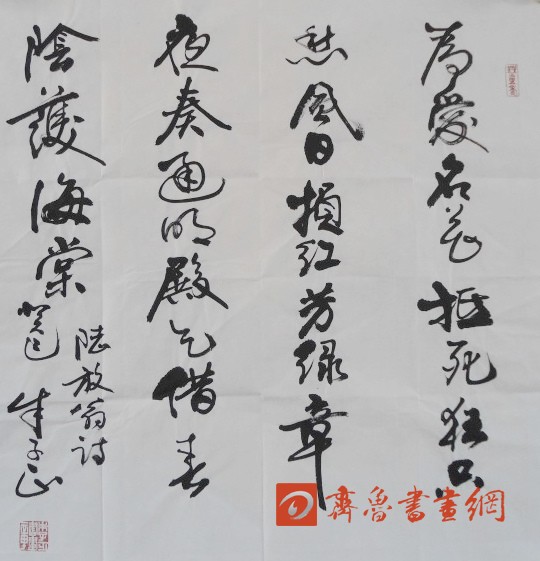 為愛名花抵死狂只
愁風日損紅芳綠章
夜奏通明殿乞借春
陰護海棠
陸放翁詩
癸巳
齊魯書畫網